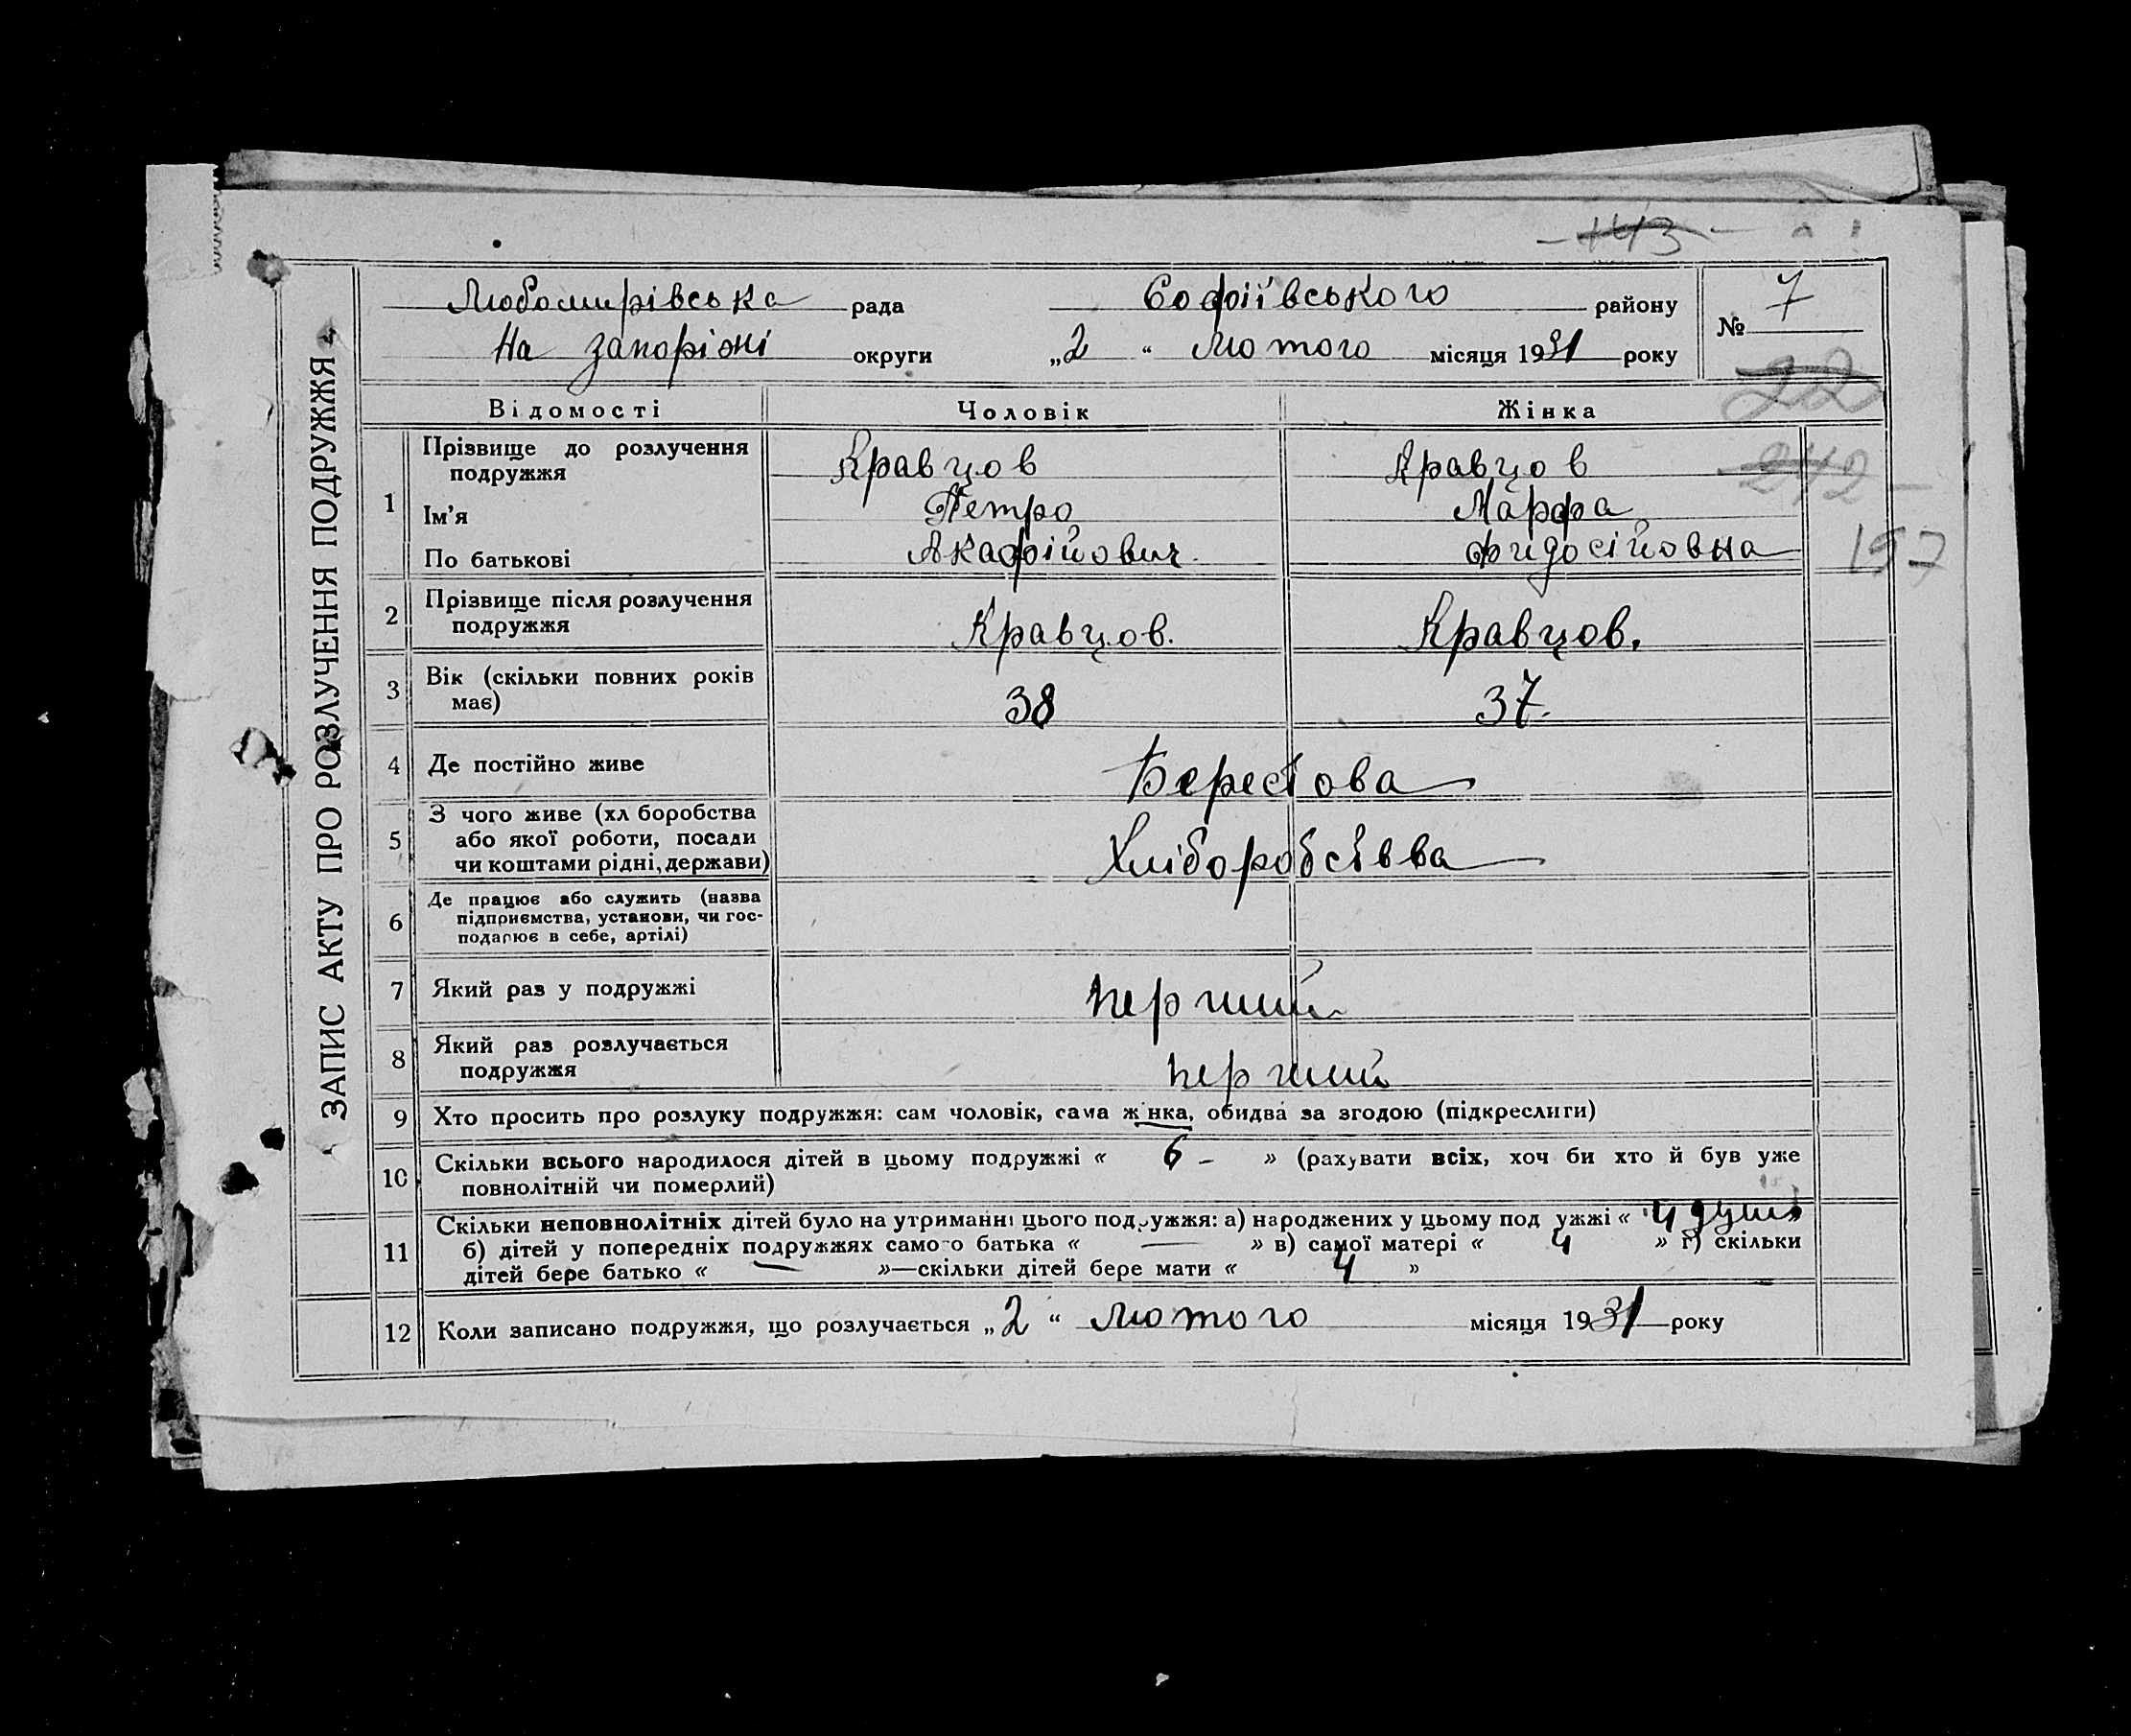 - 143 -
Любомирівська рада Софіївського району № 7
На запоріжі округи „2“ Лютого місяця 1931 року
22
ЗАПИС АКТУ ПРО РОЗЛУЧЕННЯ ПОДРУЖЖЯ
Відомості Чоловік Жінка
1 Прізвище до розлучення подружжя Кравцов Кравцов 242 -
Ім'я Петро Марфа
По батькові Акафійович Фидосійовна 157
2 Прізвище після розлучення
подружжя Кравцов. Кравцов.
3 Вік (скільки повних років
має) 38 37.
4 Де постійно живе Берестова
5 З чого живе (хл боробства
або якої роботи, посади
чи коштами рідні, держави) Хліборобствва
6 Де працює або служить (назва
підприємства, установи, чи гос-
подарює в себе, артілі)
7 Який раз у подружжі перший
8 Який раз розлучається
подружжя перший
9 Хто просить про розлуку подружжя: сам чоловік, сама ж нка, обидва за згодою (підкреслити)
10 Скільки всього народилося дітей в цьому подружжі « 6 - » (рахувати всіх, хоч би хто й був уже
повнолітній чи померлий)
11 Скільки неповнолітніх дітей було на утриманні цього подружжя: а) народжених у цьому под ужжі « 4 душі »
б) дітей у попередніх подружжях самого батька « — » в) самої матері « 4 » г) скільки
дітей бере батько « — »—скільки дітей бере мати « 4 »
12 Коли записано подружжя, що розлучається „2“ Лютого місяця 1931 року